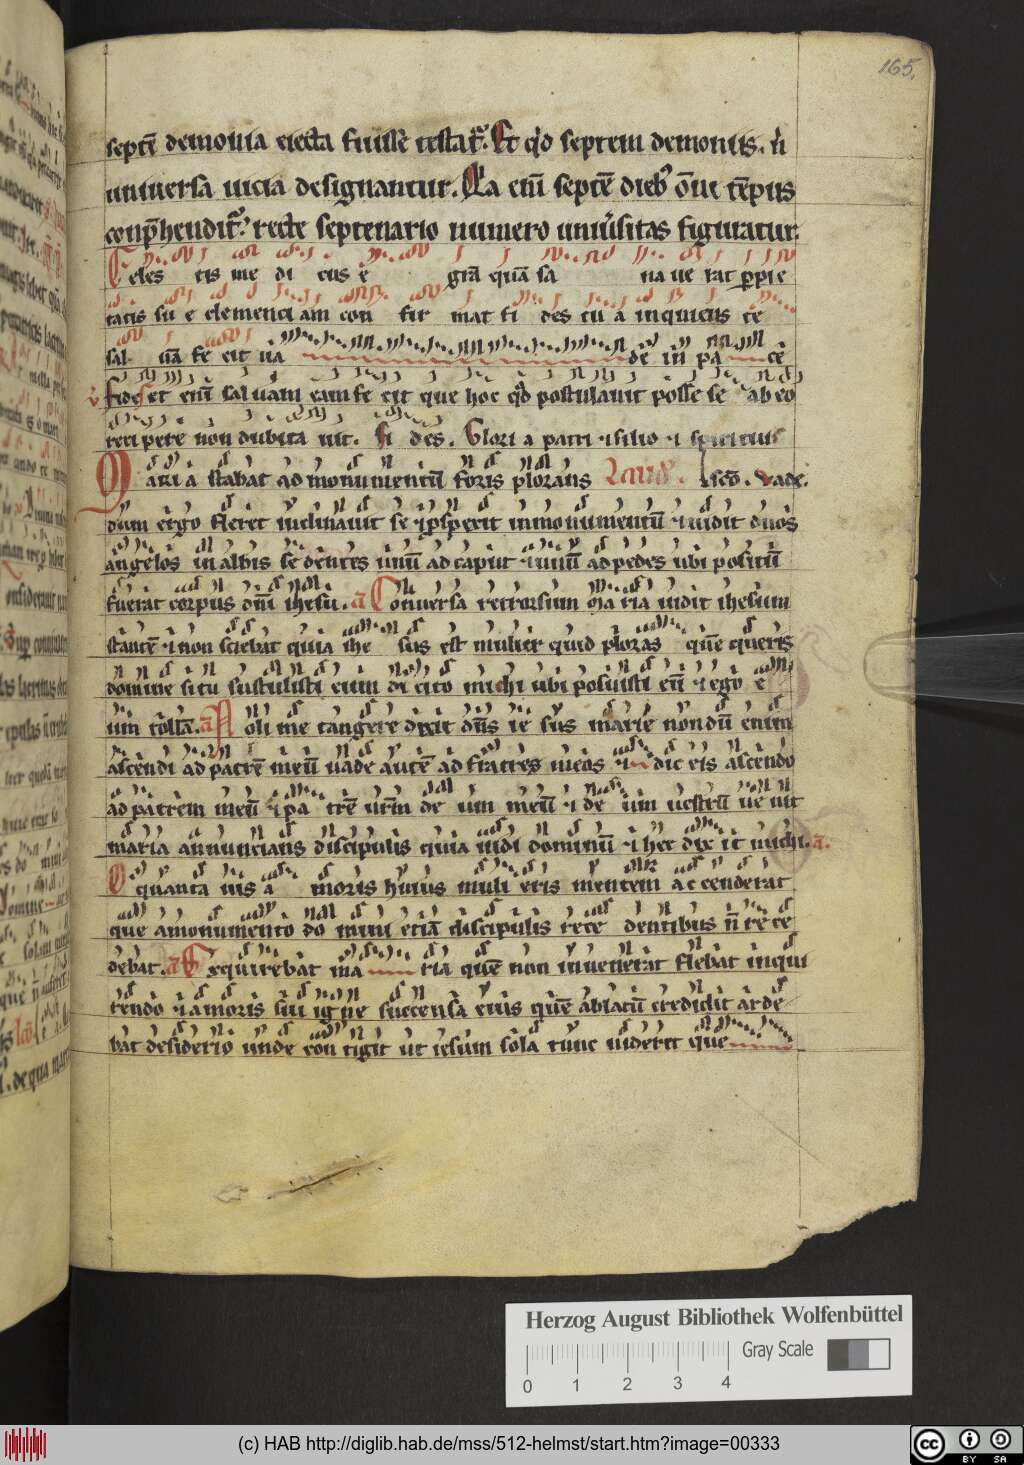 165.
septē demonia eiecta fuisse testat᷑. Et qd septem demoniis. n̄
universa vicia designantur. Qa enī septē dieb᷒ om̄e tēpus
conp̄henditᷣ. recte septenario numero univ̓sitas figuratur.
Celes tis me di cus e grā quā sa na ve rat ꝑpie
tatis su e clementi am con fir mat fi des tu a inquiens te
sal uā fe cit va de in pa ce
fides et enī salvam eam fe cit que hoc qd postulavit posse se ab eo
reci pere non dubita vit. fi des. Glori a patri ⁊ filio ⁊ spiritui
Mari a stabat ad monumentū foris plorans Laud. scō. Vade.
dum ergo fleret inclinavit se ⁊ ꝓspexit in monumentū ⁊ vidit duos
angelos in albis se dentes unū ad caput ⁊ unū ad pedes ubi positū
fuerat corpus dn̄i ihesu. a Conversa retrorsum ma ria vidit ihesum
stantē ⁊ non sciebat quia ihe sus est mulier quid ploras quē queris
domine si tu sustulisti eum di cito michi ubi posuisti eū ⁊ ego e
um tollā. a Noli me tangere dixit dn̄s ie sus marie nondū enim
ascendi ad patrē meū vade autē ad fratres meos ⁊ dic eis ascendo
ad patrem meū ⁊ pa trē vr̄m de um meū ⁊ de um vestrū ve nit
maria annuncians discipulis quia vidi dominū ⁊ hec dix it michi. a
O quanta vis a moris huius muli eris mentem ac cenderat
que a monumento do mini etiā discipulis rece dentibus n̄ rece
debat. a Exquirebat ma ria quē non invenerat flebat inqui
rendo ⁊ amoris sui igne succensa eius quē ablatū credidit arde
bat desiderio unde con tigit ut iesum sola tunc videret que
Herzog August Bibliothek Wolfenbüttel
Gray Scale
0 1 2 3 4
(c) HAB http://diglib.hab.de/mss/512-helmst/start.htm?image=00333
cc BY SA